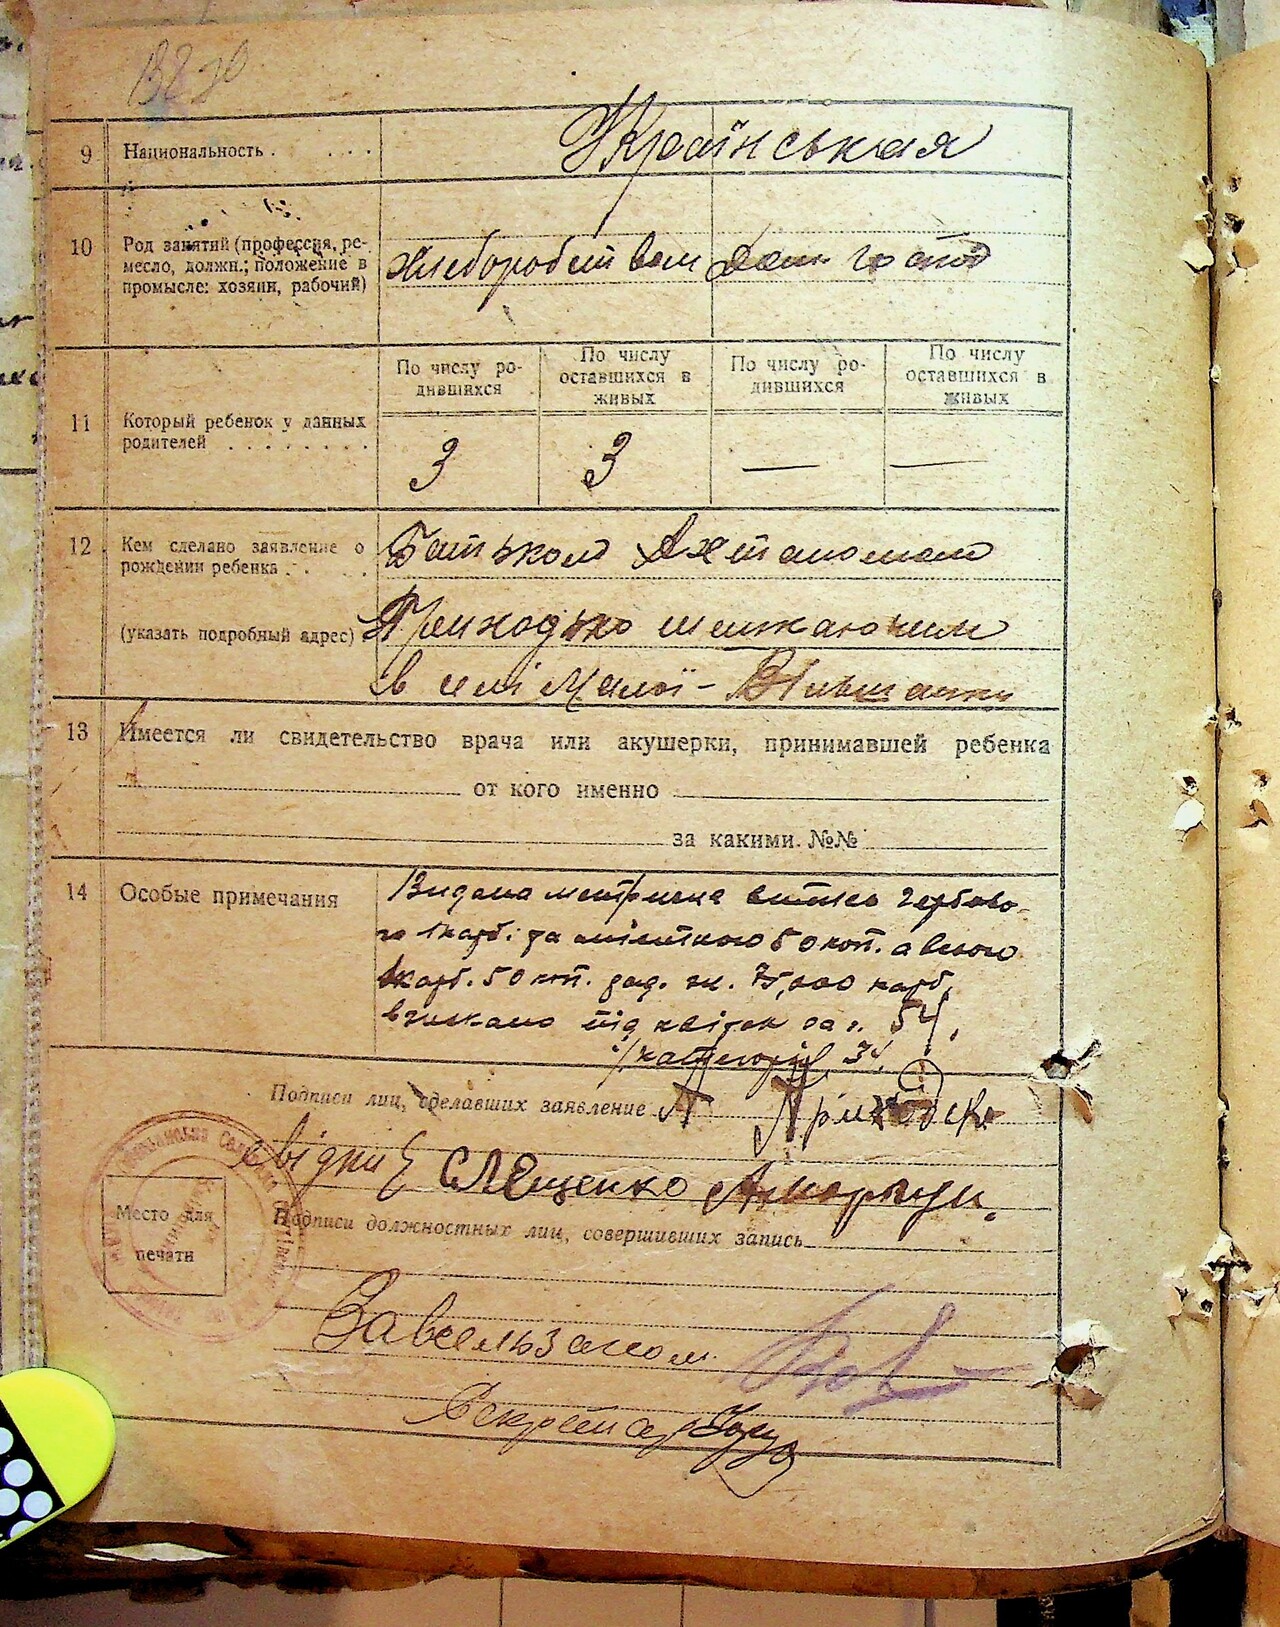 9 Национальность . . . . . Українськая
10 Род занятий (профессия, ре-
месло, должн.; положение в
промысле: хозяин, рабочий)
хлеборобством
11 Который ребенок у данных
родителей . . . . . . . .
По числу ро-
дившихся
По числу
оставшихся в
живых
По числу ро-
дившихся
По числу
оставшихся в
живых
3 3 — —
12 Кем сделано заявление о
рождении ребенка . . .
(указать подробный адрес)
Батьком
Приходько мешкаючим
в селі Малої-Вільшанки
13 Имеется ли свидетельство врача или акушерки, принимавшей ребенка
от кого именно
за какими. №№
14 Особые примечания
Видана метрична витись гербово-
го 1 карб. 50 коп. а всього
1 карб. 50 коп. 75,000 карб.
взискано під квіток за № 54.
категорії 34
Подписи лиц, сделавших заявление А Приходько
свідки С Лещенко
Подписи должностных лиц, совершивших запись
Место для
печати
Завсельзагсом
Секретар